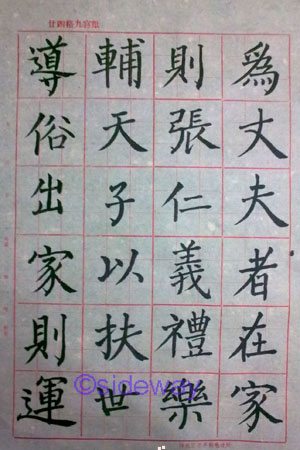 廿四格九宮指
為丈夫者在家
則張仁義禮樂
輔天子以扶世
導俗出家則運
©sideway